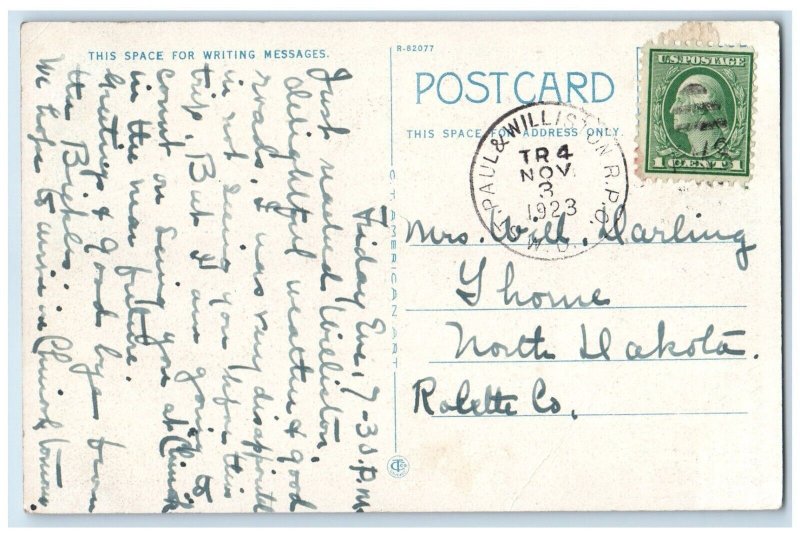 THIS SPACE FOR WRITING MESSAGES.
Friday Eve, 7-30 P.M.
Just reached Williston,
delightful weather & good
roads. I was very disappointed
in not seeing you before this
trip, But I am going to
count on seeing you at Chinook
in the near future.
Greetings & Good bye from
the
We hope to arrive in Chinook Tomorrow.
R-82077
POST CARD
THIS SPACE FOR ADDRESS ONLY.
C.T. AMERICAN ART
U.S. POSTAGE
1 CENT 1
ST. PAUL & WILLISTON R.P.O.
TR 4
NOV
3
1923
Mrs. Will. Darling
Thorne
North Dakota.
Rolette Co.